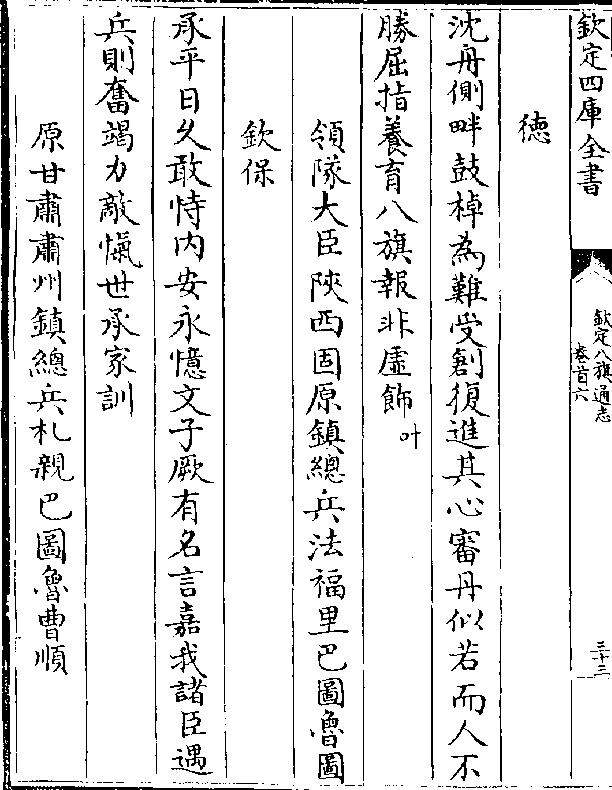 欽定四庫全書
欽定八旗通志
卷首六
三十三
德
沈舟側畔鼓棹為難受創復進其心審丹似若而人不
勝屈指養育八旗報非虛飾叶
領隊大臣陝西固原鎮總兵法福里巴圖魯圖
欽保
承平日久敢恃內安永憶文子厥有名言嘉我諸臣遇
兵則奮竭力敵愾世承家訓
原甘肅肅州鎮總兵札親巴圖魯曹順